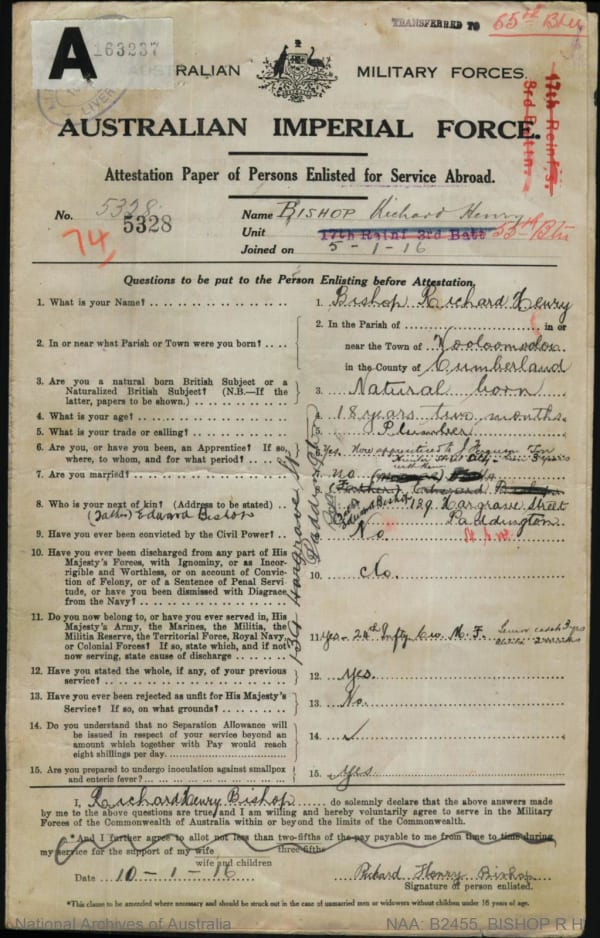 TRANSFERRED TO 55th Btn
A 163237
AUSTRALIAN MILITARY FORCES.
17th Reinfs.
3rd Battn.
AUSTRALIAN IMPERIAL FORCE.
Attestation Paper of Persons Enlisted for Service Abroad.
No. 5328
5328
74
Name BISHOP Richard Henry
Unit 17th Reinf 3rd Batt 55th Btn
Joined on 5-1-16
Questions to be put to the Person Enlisting before Attestation.
1. What is your Name?
1. Bishop Richard Henry
2. In or near what Parish or Town were you born?
2. In the Parish of in or
near the Town of Wooloomooloo
in the County of Cumberland
3. Are you a natural born British Subject or a
Naturalized British Subject? (N.B.—If the
latter, papers to be shown.)
3. Natural born
4. What is your age?
4. 18 years two months
5. What is your trade or calling?
5. Plumber
6. Are you, or have you been, an Apprentice? If so,
where, to whom, and for what period?
6. Yes. Now apprenticed to
3 years
7. Are you married?
7. no
8. Who is your next of kin? (Address to be stated)
(Father) Edward Bishop
8. (Father) Edward Bishop
Edward Bishop 129 Hargrave Street
Paddington
N.S.W.
134 Hargrave St
Paddington
9. Have you ever been convicted by the Civil Power?
9. No
10. Have you ever been discharged from any part of His
Majesty's Forces, with Ignominy, or as Incor-
rigible and Worthless, or on account of Convic-
tion of Felony, or of a Sentence of Penal Servi-
tude, or have you been dismissed with Disgrace
from the Navy?
10. do.
11. Do you now belong to, or have you ever served in, His
Majesty's Army, the Marines, the Militia, the
Militia Reserve, the Territorial Force, Royal Navy,
or Colonial Forces? If so, state which, and if not
now serving, state cause of discharge
11. Yes - 24th Infty C. M. F. Senior cadets 3 yrs
12. Have you stated the whole, if any, of your previous
service?
12. yes.
13. Have you ever been rejected as unfit for His Majesty's
Service? If so, on what grounds?
13. No.
14. Do you understand that no Separation Allowance will
be issued in respect of your service beyond an
amount which together with Pay would reach
eight shillings per day.
14. ✓
15. Are you prepared to undergo inoculation against smallpox
and enteric fever?
15. yes
I, Richard Henry Bishop do solemnly declare that the above answers made
by me to the above questions are true, and I am willing and hereby voluntarily agree to serve in the Military
Forces of the Commonwealth of Australia within or beyond the limits of the Commonwealth.
*And I further agree to allot not less than two-fifths of the pay payable to me from time to time during
three-fifths
my service for the support of my wife
wife and children
Date 10-1-16
Richard Henry Bishop
Signature of person enlisted.
*This clause to be amended where necessary and should be struck out in the case of unmarried men or widowers without children under 16 years of age.
National Archives of Australia
NAA: B2455, BISHOP R H